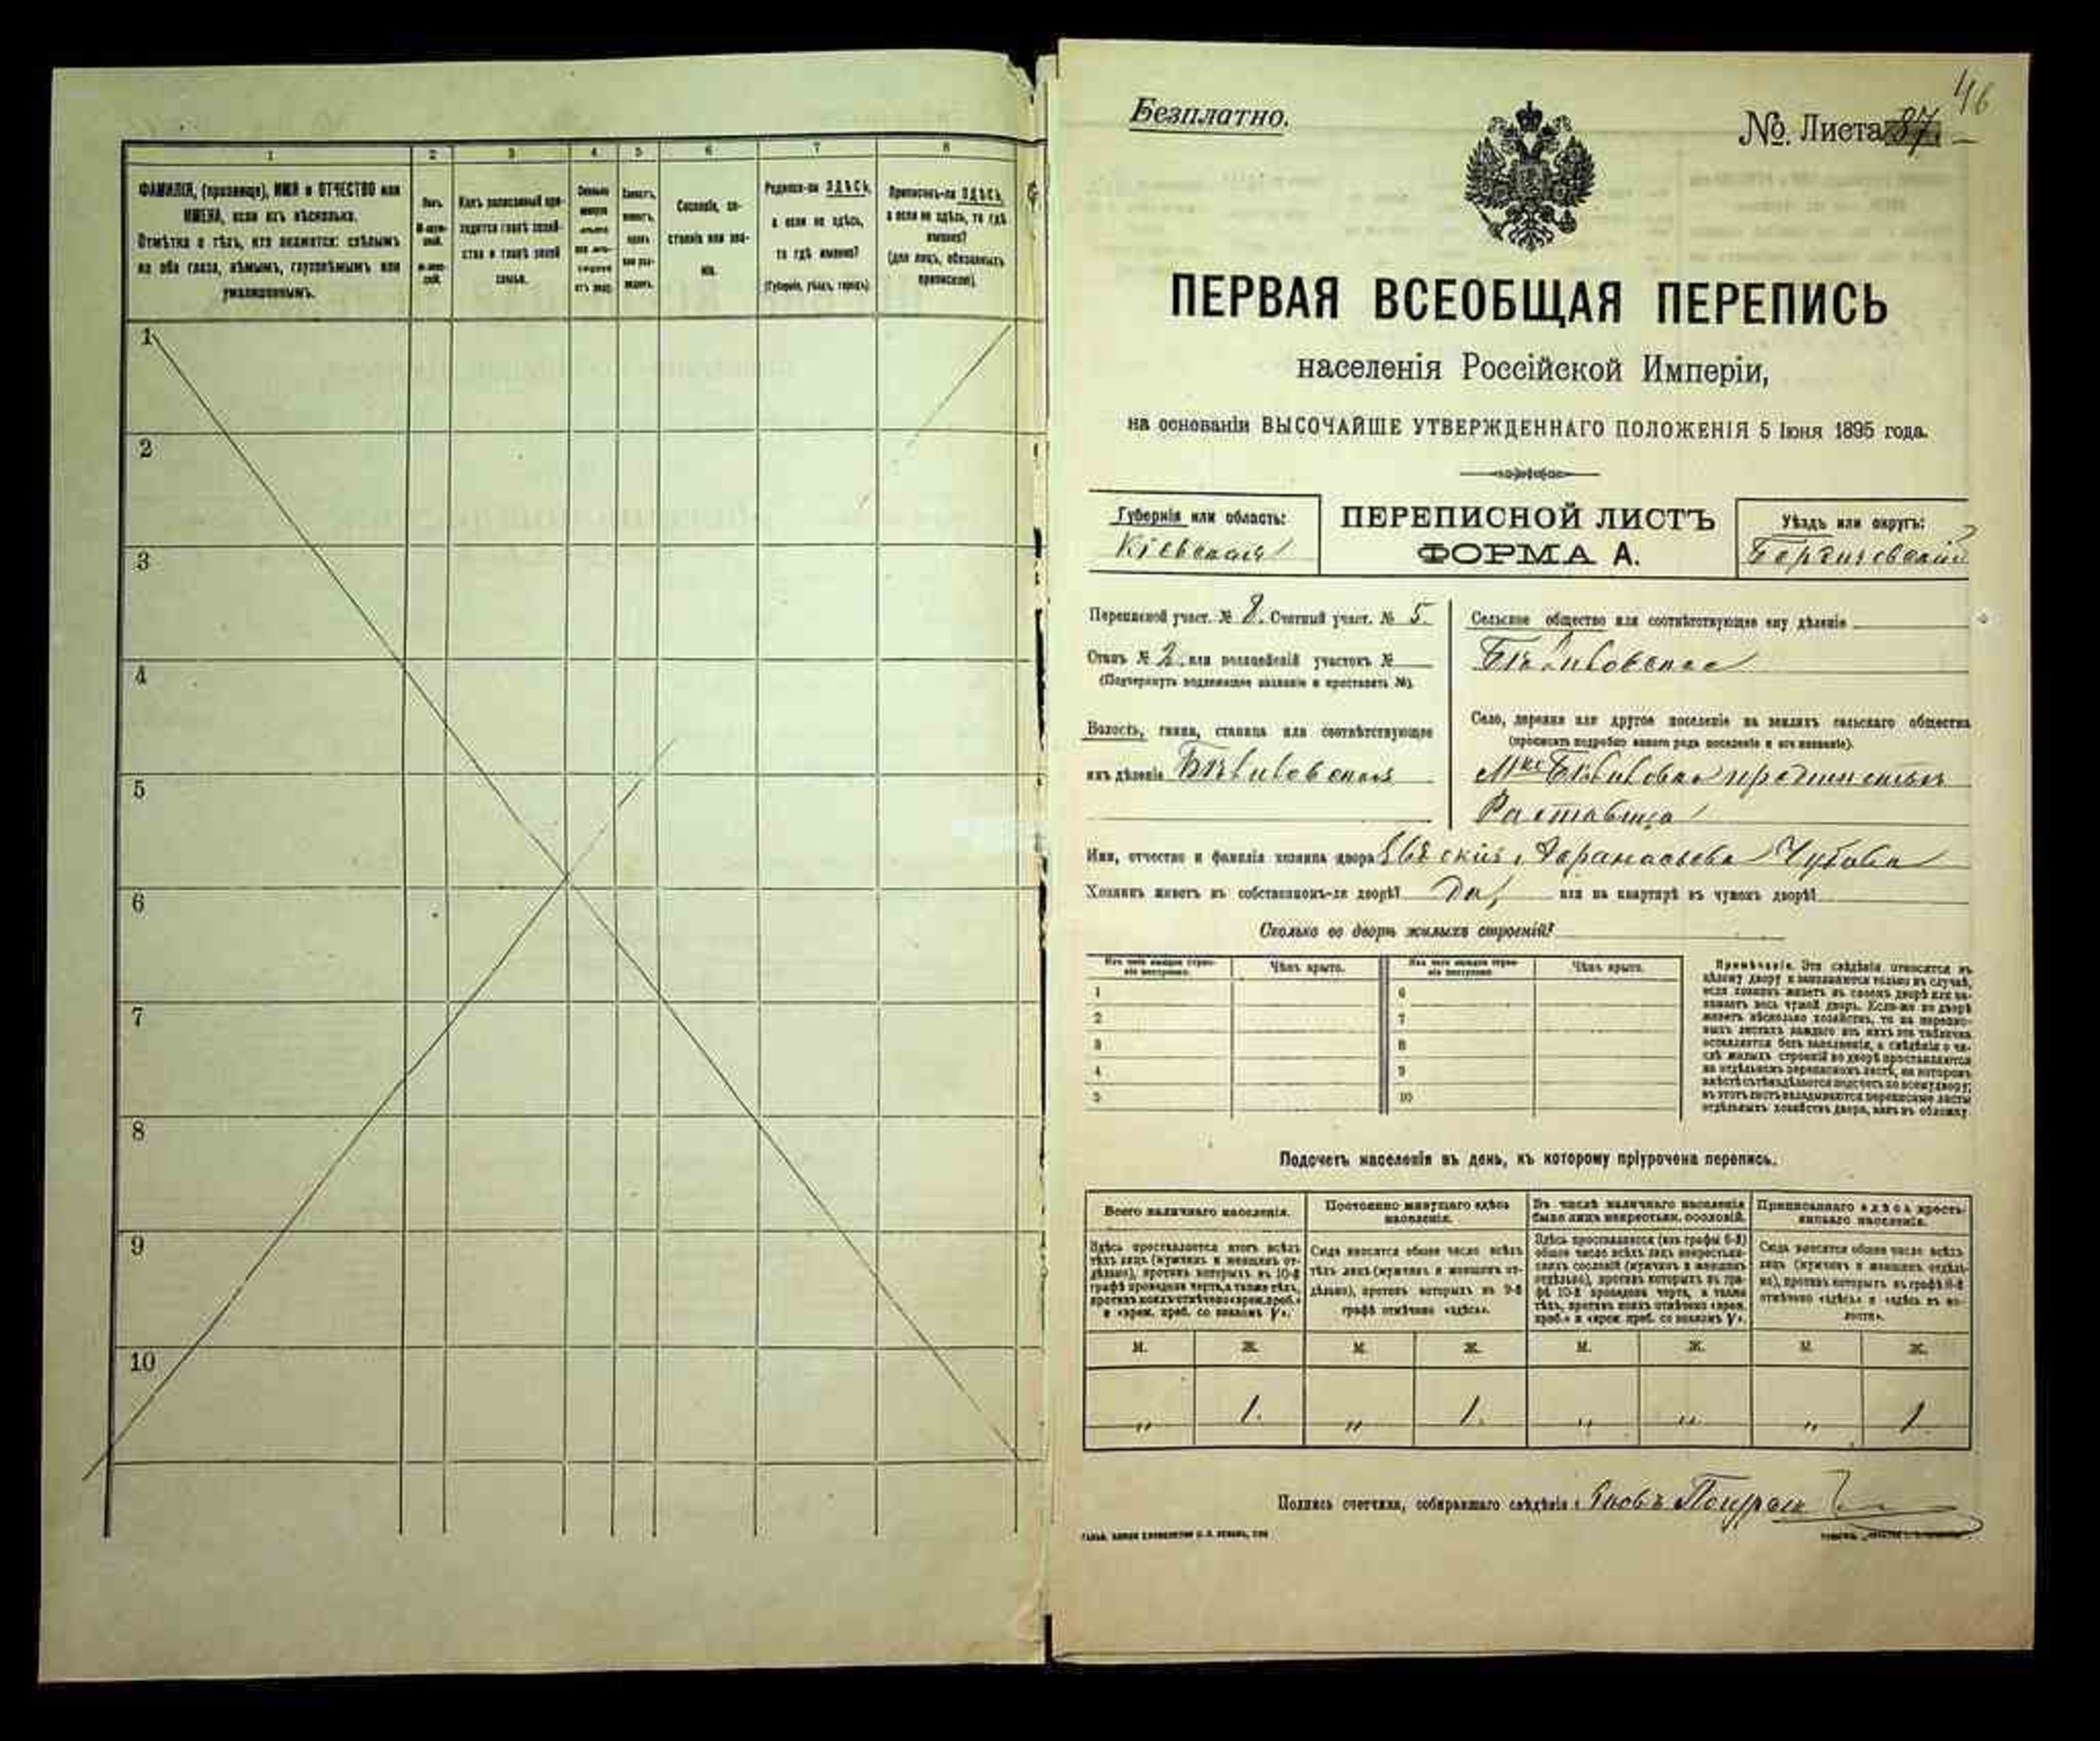 1 2 3 4 5 6 7 8
ФАМИЛІЯ, (прозвище), ИМЯ и ОТЧЕСТВО или
ИМЕНА, если ихъ нѣсколько.
Отмѣтка о тѣхъ, кто окажется: слѣпымъ
на оба глаза, нѣмымъ, глухонѣмымъ или
умалишеннымъ.
Полъ.
М-муж-
ской.
Ж-жен-
ской.
Какъ записанный при-
ходится главѣ хозяй-
ства и главѣ своей
семьи.
Сколько
Сословіе, со-
стояніе или зва-
ніе.
Родился-ли ЗДѢСЬ,
а если не здѣсь,
то гдѣ именно?
(Губернія, уѣздъ, городъ)
Приписанъ-ли ЗДѢСЬ,
а если не здѣсь, то гдѣ
именно?
(для лицъ, обязанныхъ
припиской).
1
2
3
4
5
6
7
8
9
10
46
Безплатно.
№. Листа 87.
ПЕРВАЯ ВСЕОБЩАЯ ПЕРЕПИСЬ
населенія Россійской Имперіи,
на основаніи ВЫСОЧАЙШЕ УТВЕРЖДЕННАГО ПОЛОЖЕНІЯ 5 Іюня 1895 года.
Губернія или область:
Кіевская
ПЕРЕПИСНОЙ ЛИСТЪ
ФОРМА А.
Уѣздъ или округъ:
Бердичевскій
Переписной участ. № 8. Счетный участ. № 5.
Станъ № 2. или полицейскій участокъ №
(Подчеркнуть подлежащее названіе и проставить №).
Волость, гмина, станица или соотвѣтствующее
имъ дѣленіе Бѣлиловская
Сельское общество или соотвѣтствующее ему дѣленіе
Бѣлиловское
Село, деревня или другое поселеніе на земляхъ сельскаго общества
(прописать подробно какого рода поселеніе и его названіе).
Мко Бѣлиловка предмѣстье
Раставица
Имя, отчество и фамилія хозяина двора Афанасьева
Хозяинъ живетъ въ собственномъ-ли дворѣ? да, или на квартирѣ въ чужомъ дворѣ?
Сколько во дворѣ жилыхъ строеній?
Изъ чего каждое строе-
ніе построено. Чѣмъ крыто. Изъ чего каждое строе-
ніе построено. Чѣмъ крыто.
1 6
2 7
3 8
4 9
5 10
Примѣчаніе. Эти свѣдѣнія относятся къ
цѣлому двору и заполняются только въ случаѣ,
если хозяинъ живетъ въ своемъ дворѣ или за-
нимаетъ весь чужой дворъ. Если-же во дворѣ
живетъ нѣсколько хозяйствъ, то на перепис-
ныхъ листахъ каждаго изъ нихъ эта табличка
оставляется безъ заполненія, а свѣдѣнія о чи-
слѣ жилыхъ строеній во дворѣ проставляются
на отдѣльномъ переписномъ листѣ, на которомъ
вмѣстѣ съ тѣмъ дѣлается подсчетъ по всему двору;
въ этотъ листъ вкладываются переписные листы
отдѣльныхъ хозяйствъ двора, какъ въ обложку
Подсчетъ населенія въ день, къ которому пріурочена перепись.
Всего наличнаго населенія.
Здѣсь проставляется итогъ всѣхъ
тѣхъ лицъ (мужчинъ и женщинъ от-
дѣльно), противъ которыхъ въ 10-й
графѣ проведена черта, а также тѣхъ,
противъ коихъ отмѣчено «врем. преб.»
и «врем. преб. со знакомъ V».
Постоянно живущаго здѣсь
населенія.
Сюда вносится общее число всѣхъ
тѣхъ лицъ (мужчинъ и женщинъ от-
дѣльно), противъ которыхъ въ 9-й
графѣ отмѣчено «здѣсь».
Въ числѣ наличнаго населенія
было лицъ некрестьян. сословій.
Здѣсь проставляется (изъ графы 6-й)
общее число всѣхъ лицъ некрестьян-
скихъ сословій (мужчинъ и женщинъ
отдѣльно), противъ которыхъ въ гра-
фѣ 10-й проведена черта, а также
тѣхъ, противъ коихъ отмѣчено «врем.
преб.» и «врем. преб. со знакомъ V».
Приписаннаго здѣсь кресть-
янскаго населенія.
Сюда вносится общее число всѣхъ
лицъ (мужчинъ и женщинъ отдѣль-
но), противъ которыхъ въ графѣ 8-й
отмѣчено «здѣсь» и «здѣсь въ во-
лости».
М. Ж. М. Ж. М. Ж. М. Ж.
„ 1. „ 1. „ „ „ 1.
Подпись счетчика, собиравшаго свѣдѣнія: Яковъ